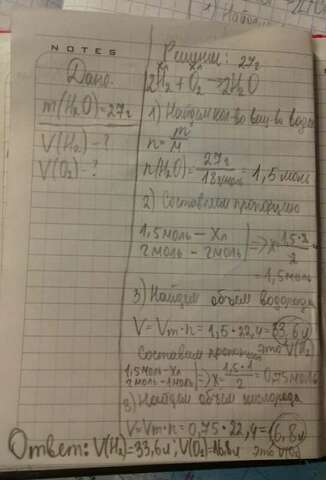 NOTES
Дано:
m(H₂O)=27г
V(H₂)-?
V(O₂)-?
Решение: 27г
Xл Xл
2H₂+O₂→2H₂O
1) Найдем кол-во вещ-ва воды
n=m/M
n(H₂O)=27г/18г/моль=1,5моль
2) Составляем пропорцию
1,5моль-Xл
2моль-2моль |=>x=1,5·2/2
=1,5моль
3) Найдем объем водорода
V=Vm·n=1,5·22,4=33,6л
это V(H₂)
Составим пропорцию
1,5моль-Xл
2моль-1моль |=>x=1,5·1/2=0,75моль
3) Найдем объем кислорода
V=Vm·n=0,75·22,4=16,8л
это V(O₂)
Ответ: V(H₂)=33,6л; V(O₂)=16,8л